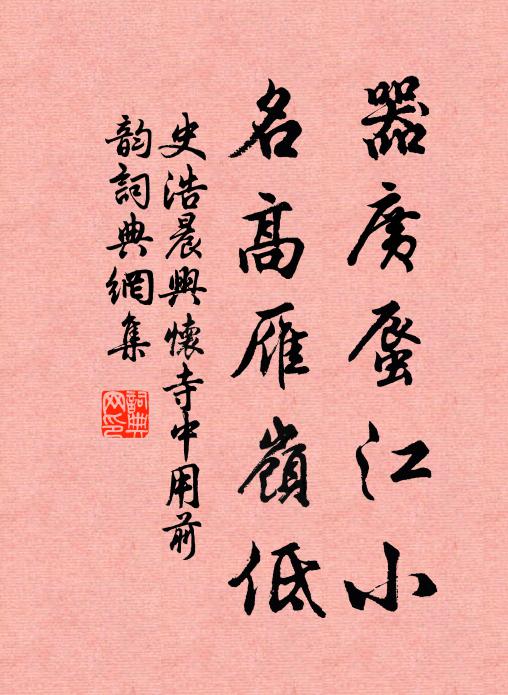 器廣蜃江小
名高雁嶺低
史浩晨興懷寺中用前
韵詞典網集
詞典网印